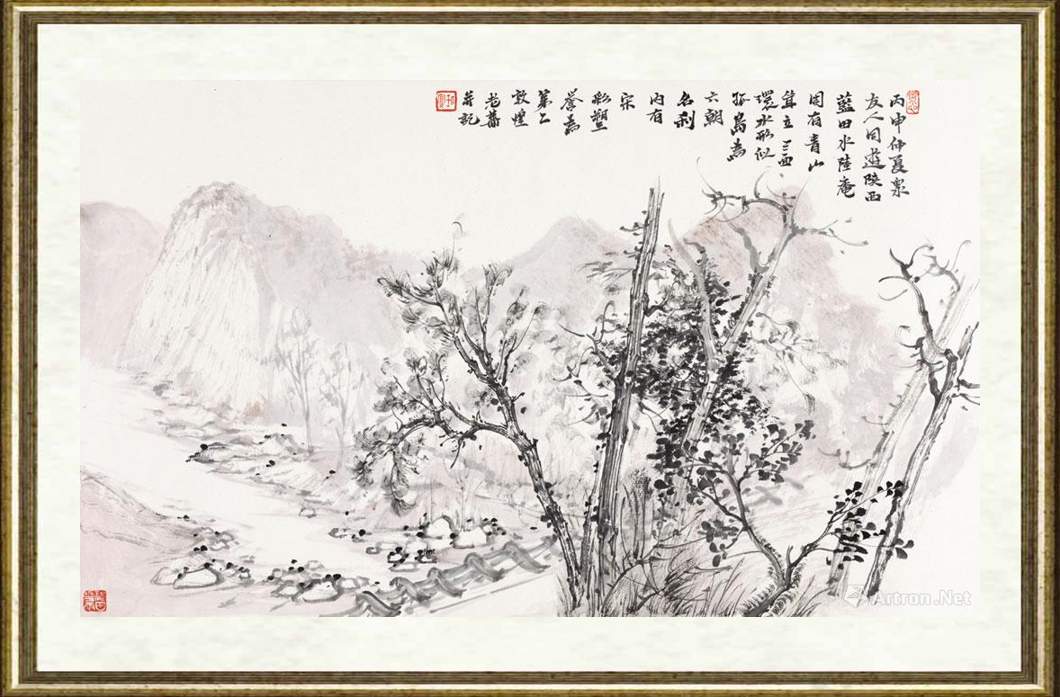 丙申仲夏泉
友人同遊陝西
藍田水陸庵
周有青山
聳立三面
環水形似
孤島為
六朝
名刹
内有
宋
彩塑
譽為
第二
敦煌
老蕭
并記
Artron.Net